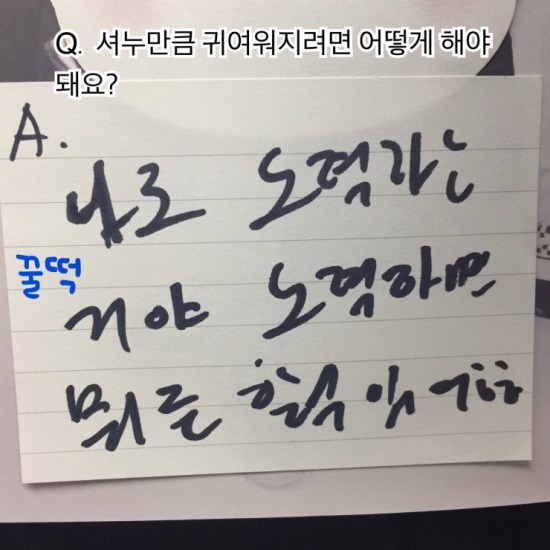 Q. 셔누만큼 귀여워지려면 어떻게 해야
돼요?
A.
나도 노력하는
꿀떡
거야 노력하면
뭐든 할수 있어